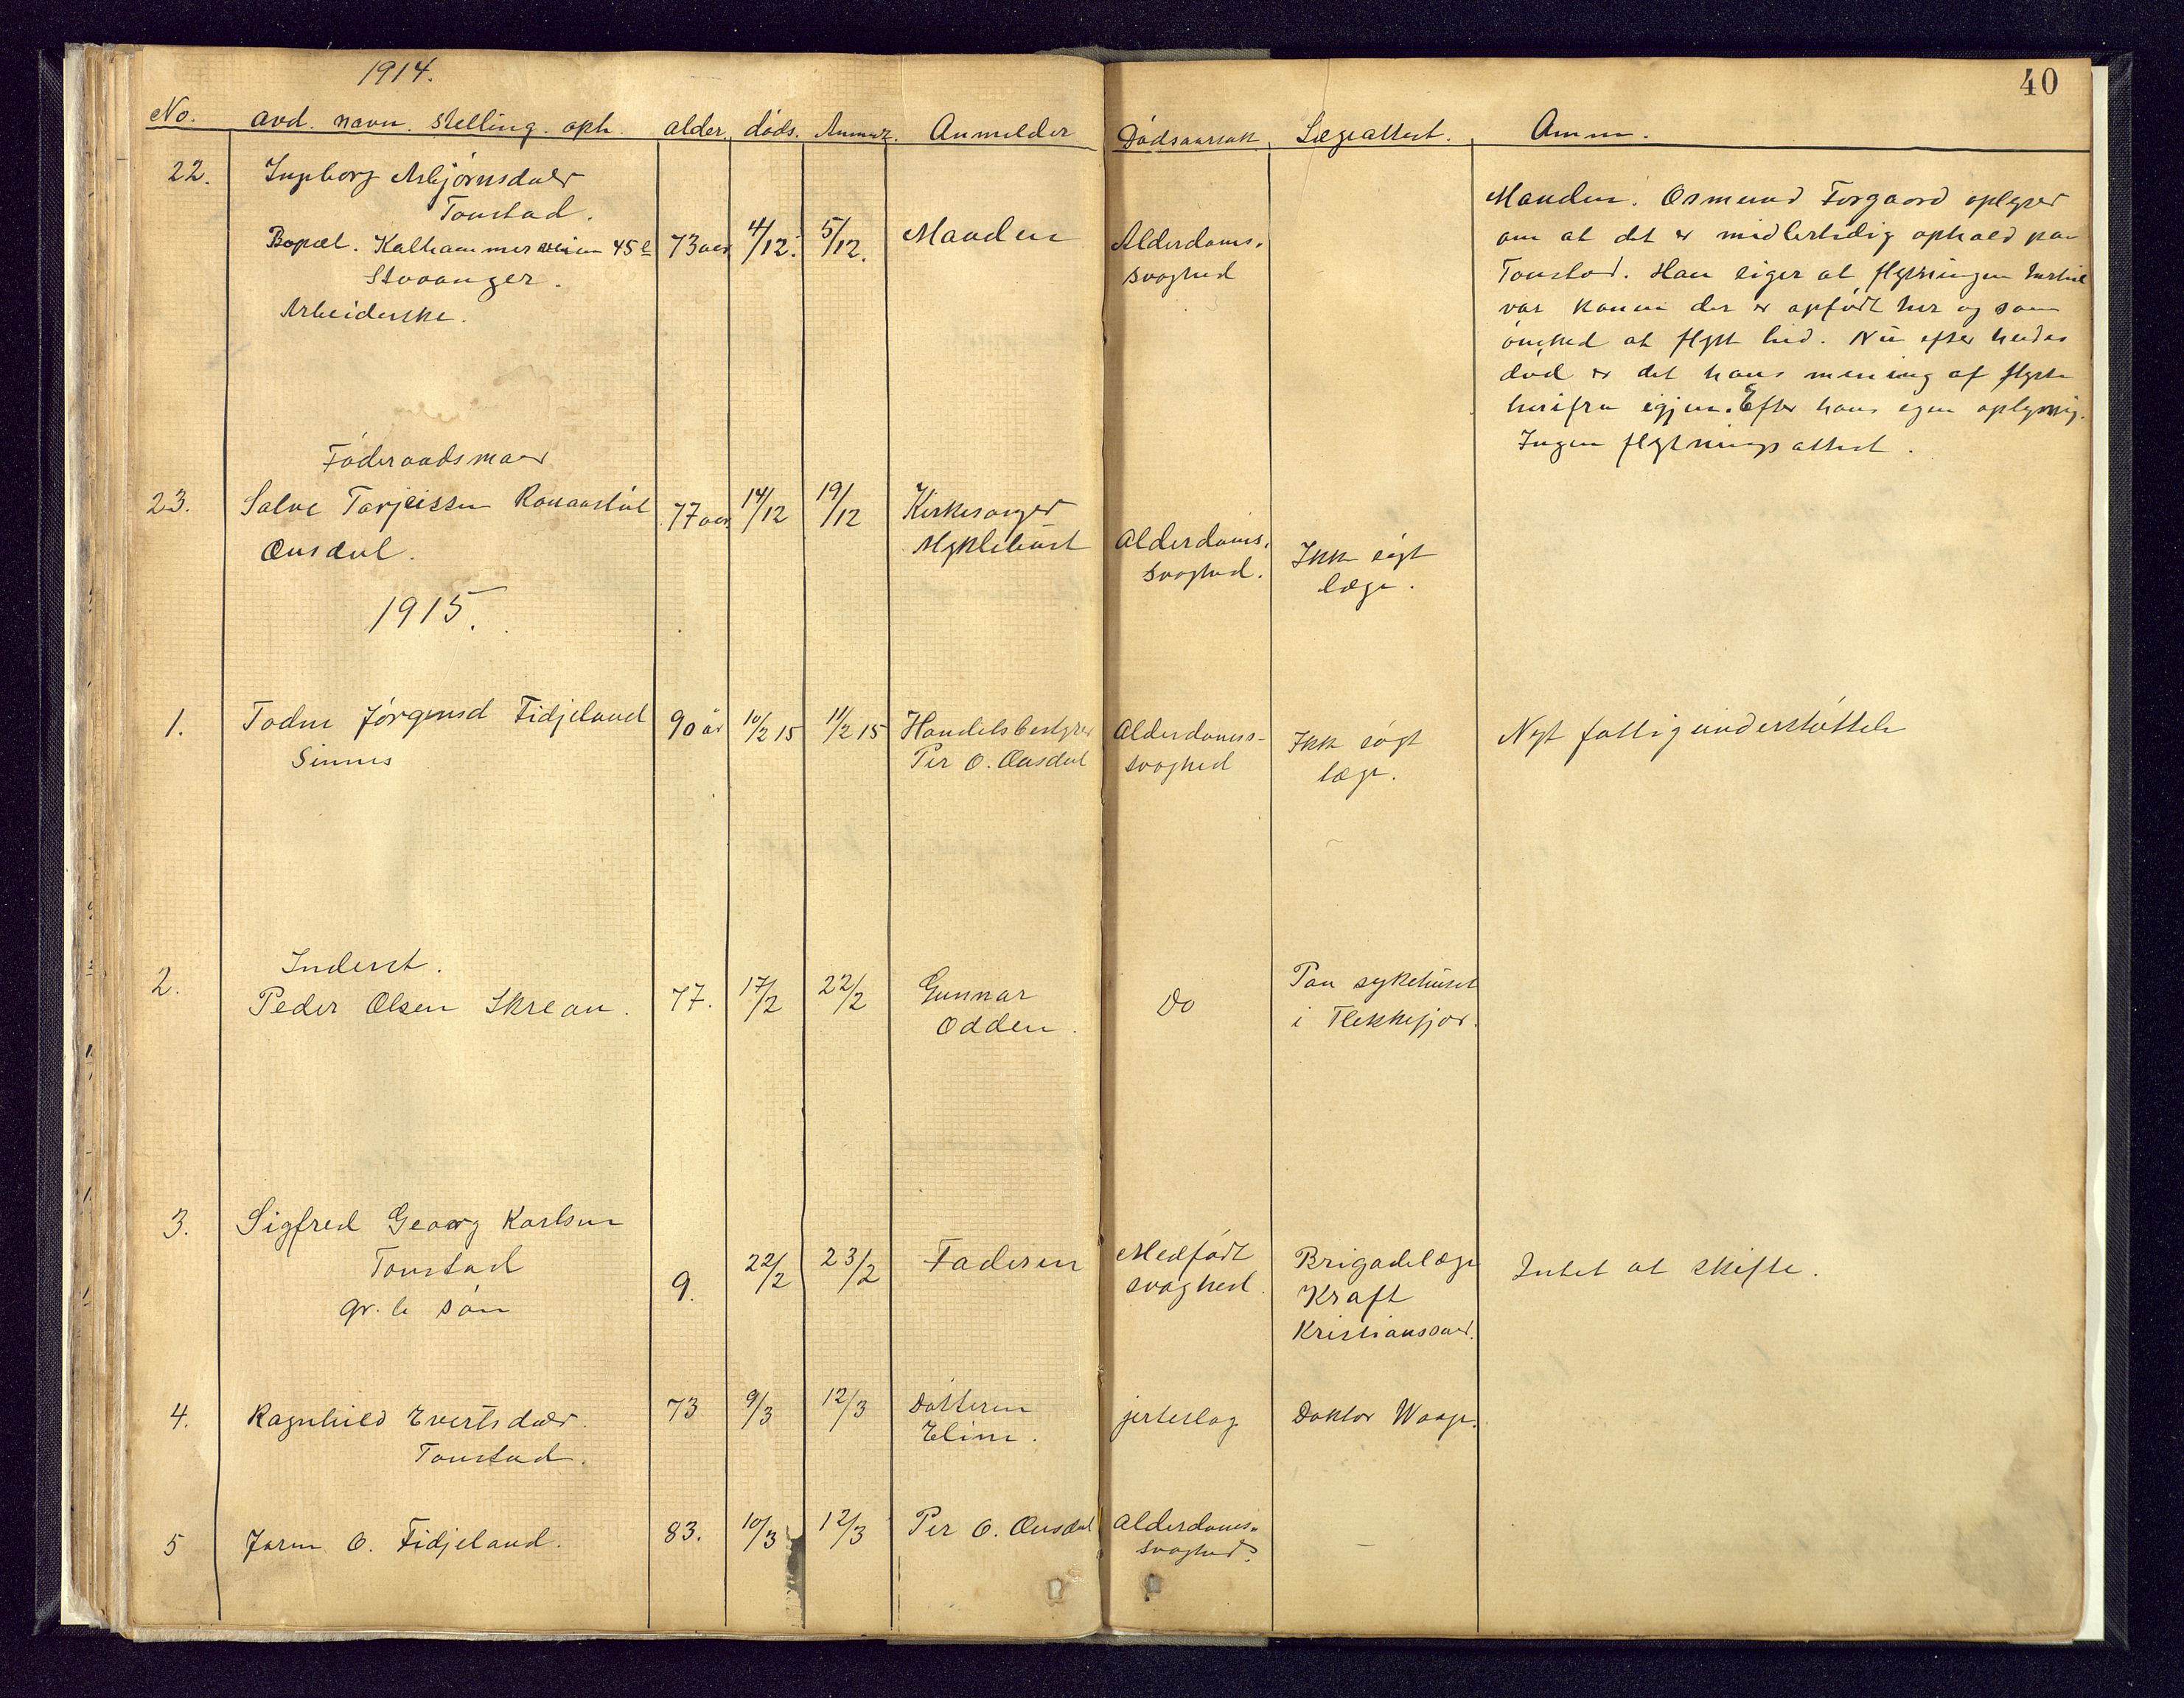 1914.
40
No. avd. navn. stelling. oph. alder. døds. Anmel. Anmelder Dødsaarsak Lægeattest. Anm.
22. Ingborg Asbjørnsdatr
Tonstad.
Bopæl. Kalhammerveien 45e 73 aar 4/12. 5/12. Manden Alderdoms-
svaghed
Stavanger.
Arbeiderske.
Manden. Osmund Forgaard oplyser
om at det er midlertidig ophold paa
Tonstad. Han siger at flytningen hertil
var konen der er opfødt her og som
ønsked at flytte hid. Nu efter hendes
død er det hans mening at flytte
herifra igjen. Efter hans egen oplysnig.
Ingen flytningsattest.
Føderaadsmand
23. Salve Tarjeissen Ronanstøl 77 aar 14/12 19/12 Kirkesanger
Myklebust
Ousdal.
Alderdoms-
svaghed.
Ikke søgt
læge.
1915.
1. Todne Jørgensd Fidjeland 90 år 10/2 15 11/2 15 Handelsbestyrer
Per O. Ousdal
Sinnes
Alderdoms-
svaghed
Ikke søgt
læge.
Nyt fattigunderstøttele
Inderst.
2. Peder Olsen Skreaa. 77. 17/2 22/2 Gunnar
Odden.
Do
Paa sykehuset
i Flekkefjor.
3. Sigfred Georg Karlsen
Tonstad
gr. b søn
9. 22/2 23/2 Faderen
Medfødt
svaghed.
Brigadelæge
Kraft
Kristianssand.
Intet at skifte.
4. Ragnhild Evertsdatr.
Tonstad.
73 9/3 12/3 Datteren
Eline.
jerteslag Doktor Waage.
5 Jorun O. Fidjeland. 83. 10/3 12/3 Per O. Ousdal Alderdoms-
svaghed.